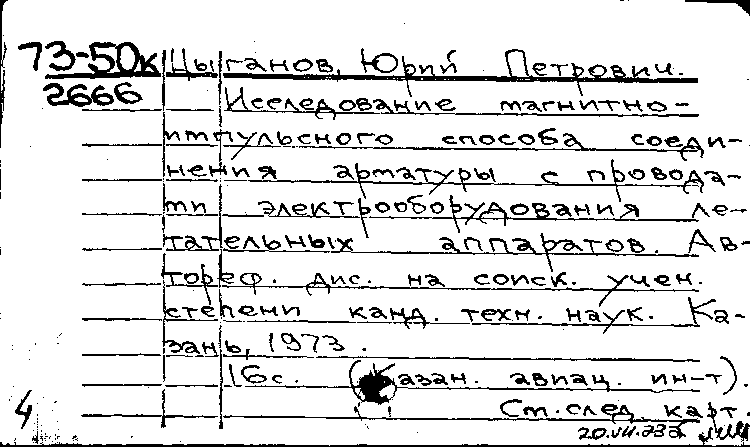 73-50к Цыганов, Юрий Петрович.
2666 Исследование магнитно-
импульсного способа соеди-
нения арматуры с провода-
ми электрооборудования ле-
тательных аппаратов. Ав-
тореф. дис. на соиск. учен.
степени канд. техн. наук. Ка-
зань, 1973.
16с. (Казан. авиац. ин-т).
4 См. след. карт.